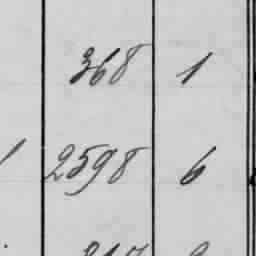 368 1
2598 6